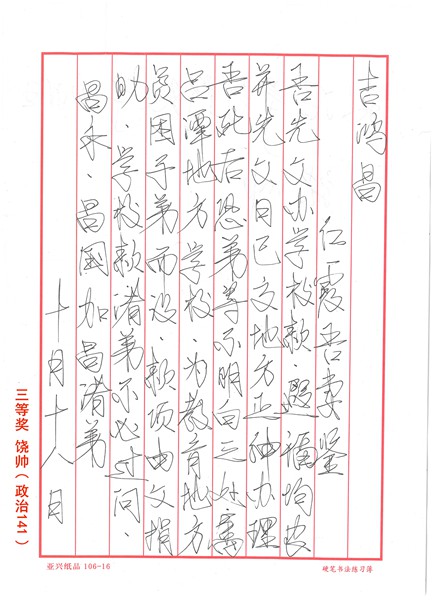 吉鸿昌
仁霞吾妻鉴
吾先父办学校款.遐福均
并先父日已交地方正绅办理
吾死后恐弟等不明白之处
吕潭地方学校.为教育地方
贫困子弟而设.款项由父捐
助.学校款诸弟不必过问.
昌永.昌国加昌诸弟
十月十八日
三等奖 饶帅（政治141）
亚兴纸品 106-16
硬笔书法练习薄